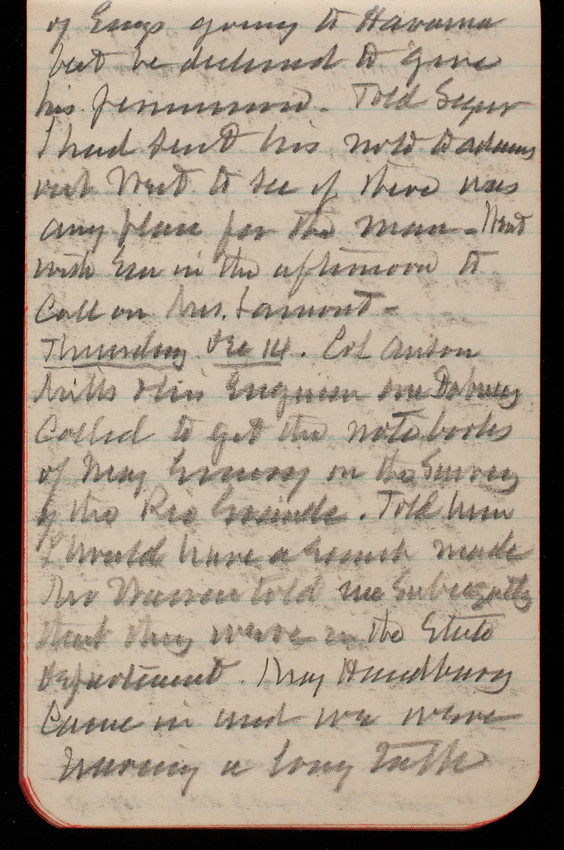 of Engs going to Havana
but he declined to give
his permission. Told Segur
I had sent his note to Adams
but went to see if there was
any place for the man - Went
with Em in the afternoon to
Call on Mrs. Lamont -
Thursday Dec 14. Col Anson
Mills & his Engineer one
Called to get the note books
of Maj Emory on the Survey
of the Rio Grande. Told him
I would have a search made
Mr Warren told me Subsequently
that they were in the State
Department. Maj Handbury
Came in and we were
having a long talk